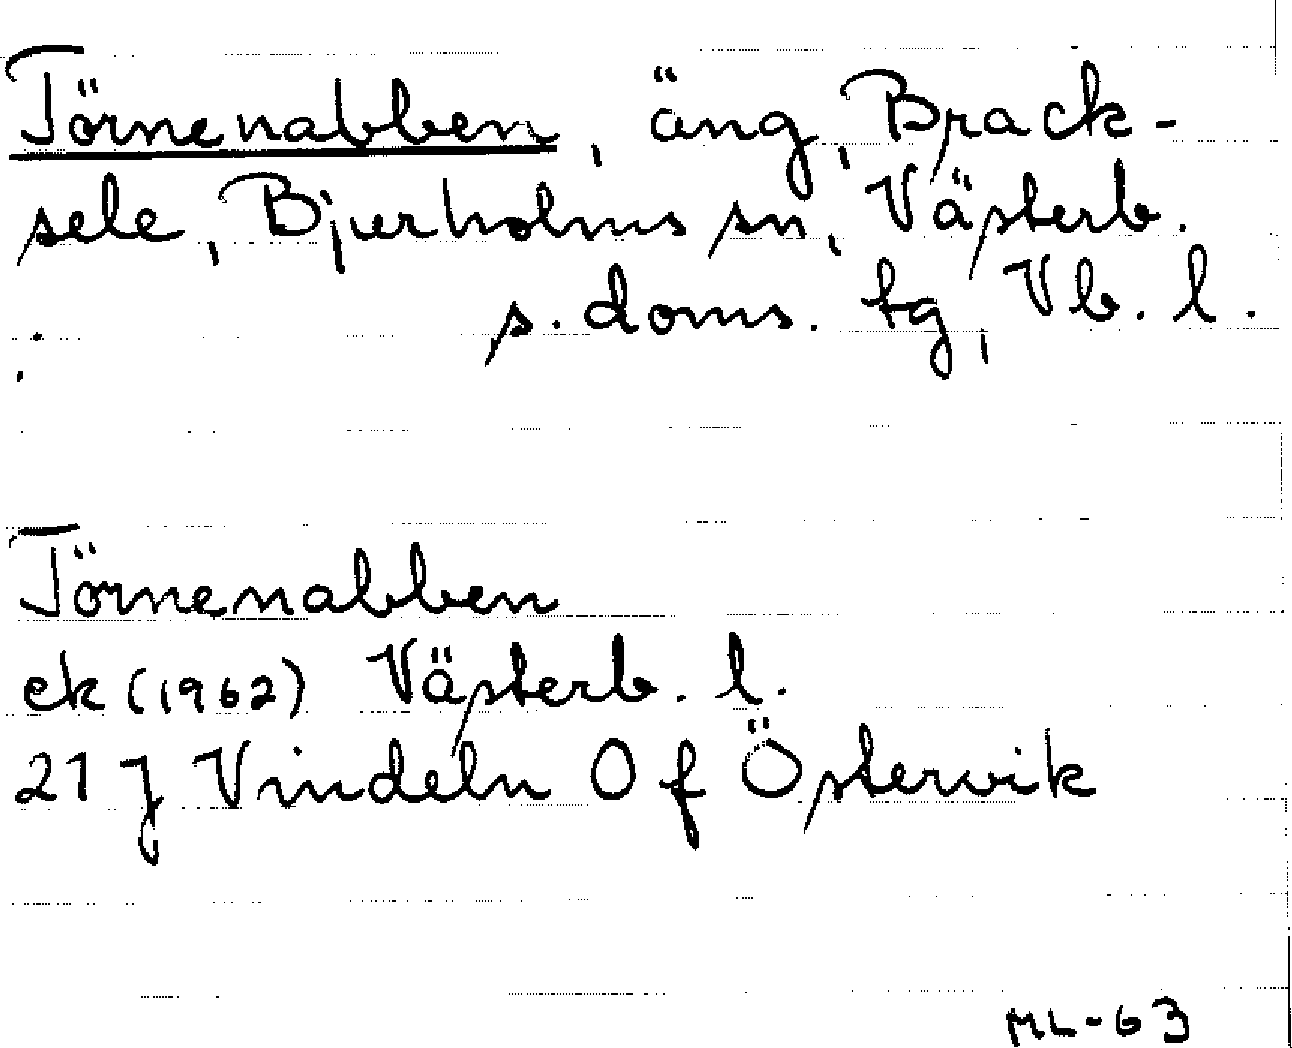 Törnenabben, äng, Brack-
sele, Bjurholms sn, Västerb.
s. doms. tg, Vb. l.
Törnenabben
ek (1962) Västerb. l.
21 J Vindeln 0 f Östervik
ML-63